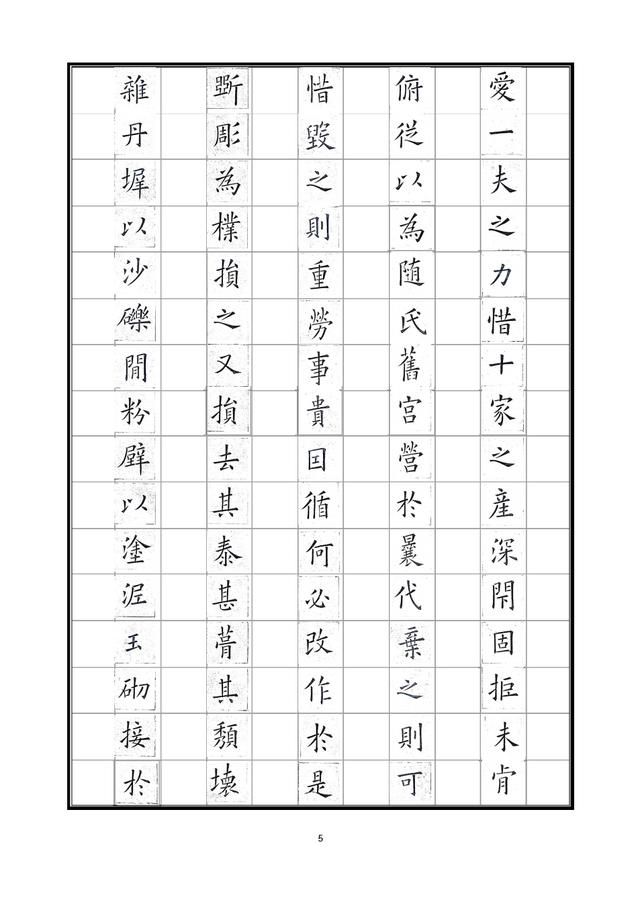 愛一夫之力惜十家之産深閇固拒未肯
俯従以為随氏舊宫營於曩代棄之則可
惜毀之則重勞事貴因循何必改作於是
斲彫為樸損之又損去其泰甚葺其頽壊
雜丹墀以沙礫間粉壁以塗泥玉砌接於
5